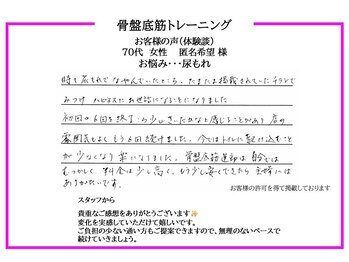 骨盤底筋トレーニング
お客様の声(体験談)
70代 女性 匿名希望 様
お悩み・・・尿もれ
時々尿もれで なやんでいたところ、たまたま掲載されていたチラシで
みつけ ハピネスにお世話になることになりました
初回の6回を終了し少しきいたかなと感じることがあり 店の
雰囲気もよく もう6回続けました。今ではトイレに駆け込むこと
が少なくなり楽になりました。骨盤底筋運動は自分では
むつかしく、料金は少し高く、もう少し安くできたら主婦には
ありがたいです。
お客様の許可を得て掲載しております
スタッフから
貴重なご感想をありがとうございます
変化を実感していただけて嬉しいです。
ご負担の少ない通い方もご提案できますので、無理のないペースで
続けていきましょう。